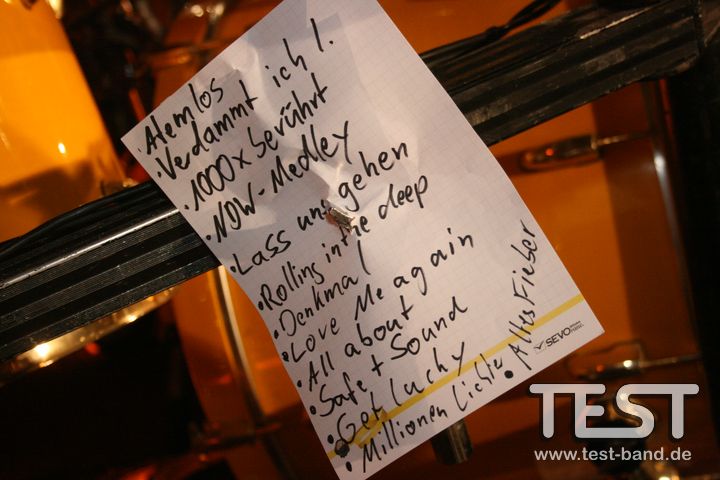 • Atemlos
• Verdammt ich l.
• 1000x berührt
• NDW-Medley
• Lass uns gehen
• Rolling in the deep
• Denkmal
• Love Me again
• All about
• Safe + Sound
• Get lucky
• Millionen Lichter
• Altes Fieber
SEVO
TEST
www.test-band.de